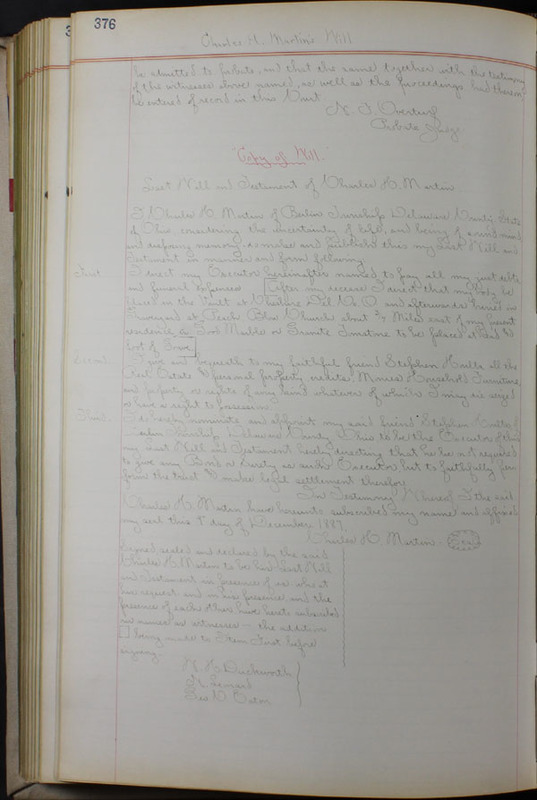 376
Charles H. Martin's Will
be admitted to probate, and that the same together with the testimony
of the witnesses above named, as well as the proceedings had thereon
be entered of record in this Court.
N. F. Overturf
Probate Judge
"Copy of Will."
Last Will and Testament of Charles H. Martin.
I Charles H. Martin of Berlin Township Delaware County State
of Ohio considering the uncertainty of life, and being of sound mind
and memory, do make and publish this my Last Will and
Testament in manner and form following.
First. I direct my Executor hereinafter named to pay all my just debts
and funeral expenses. After my decease I direct that my body be
placed in the Vault at Del. Co. O and afterwards buried in
Graveyard at Peach Blow Church about Miles east of my present
residence & Good Marble or Granite to be placed at head &
foot of Grave
Second. I give and bequeath to my faithful friend Stephen all the
Real Estate & personal property, credits, Monies Household Furniture,
and property or rights of any kind whatever of which I may die seized
or have a right to possession.
Third. I do hereby nominate and appoint my said friend Stephen of
Berlin Township Delaware County Ohio to be the Executor of this
my Last Will and Testament hereby directing that he be not required
to give any Bond or Surety as such Executor but to faithfully per
form the trust & make legal settlement therefor.
In Testimony Whereof I the said
Charles H. Martin have hereunto subscribed my name and affixed
my seal this day of December 1889.
Charles H. Martin Seal
Signed sealed and declared by the said
Charles H. Martin to be his Last Will
and Testament in presence of us who at
his request and in his presence and the
presence of each other have hereto subscribed
our names as witnesses — the addition
being made to Item First before
signing.
N. H. Duckworth
Leonard
Geo. D. Eaton